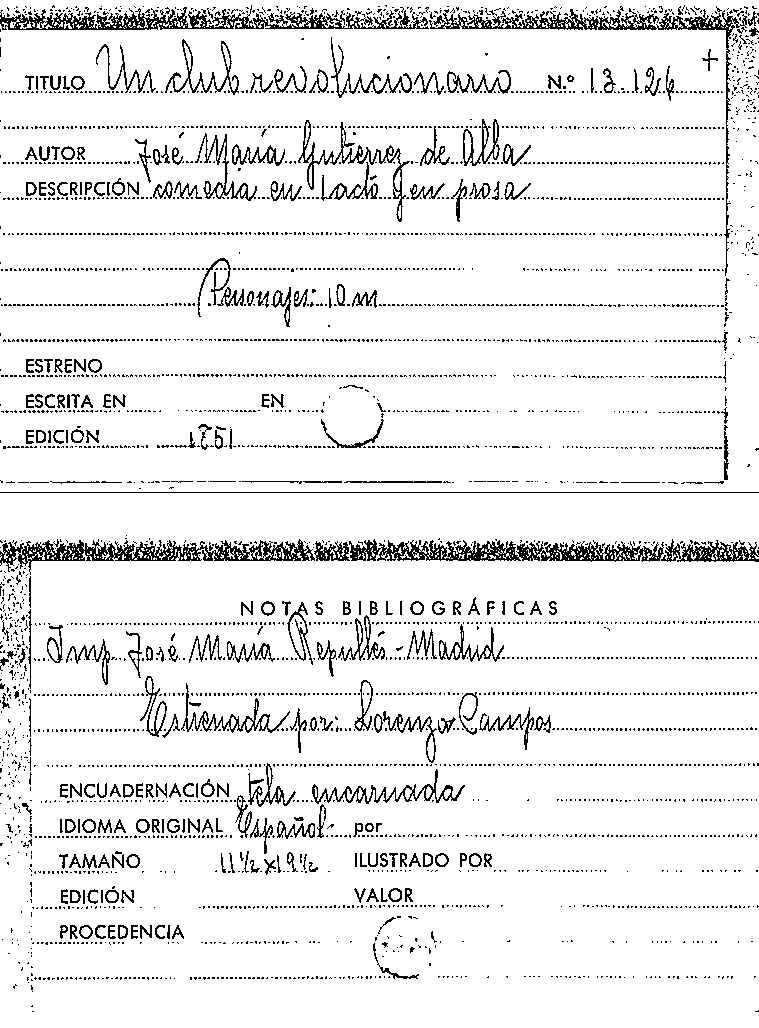 TITULO Un club revolucionario N.º 13.126 +
AUTOR José María Gutierrez de Alba
DESCRIPCIÓN comedia en 1 acto y en prosa
Personajes: 10 m
ESTRENO
ESCRITA EN EN
EDICIÓN 1851
NOTAS BIBLIOGRÁFICAS
Imp José María Repullés - Madrid
Estrenada por: Lorenzo Campos
ENCUADERNACIÓN tela encarnada
IDIOMA ORIGINAL Español por
TAMAÑO 11 1/2 x 19 1/2 ILUSTRADO POR
EDICIÓN VALOR
PROCEDENCIA